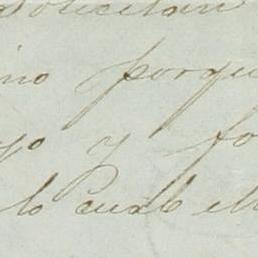 solicitan
ino porqu
yo y fo
lo cual el